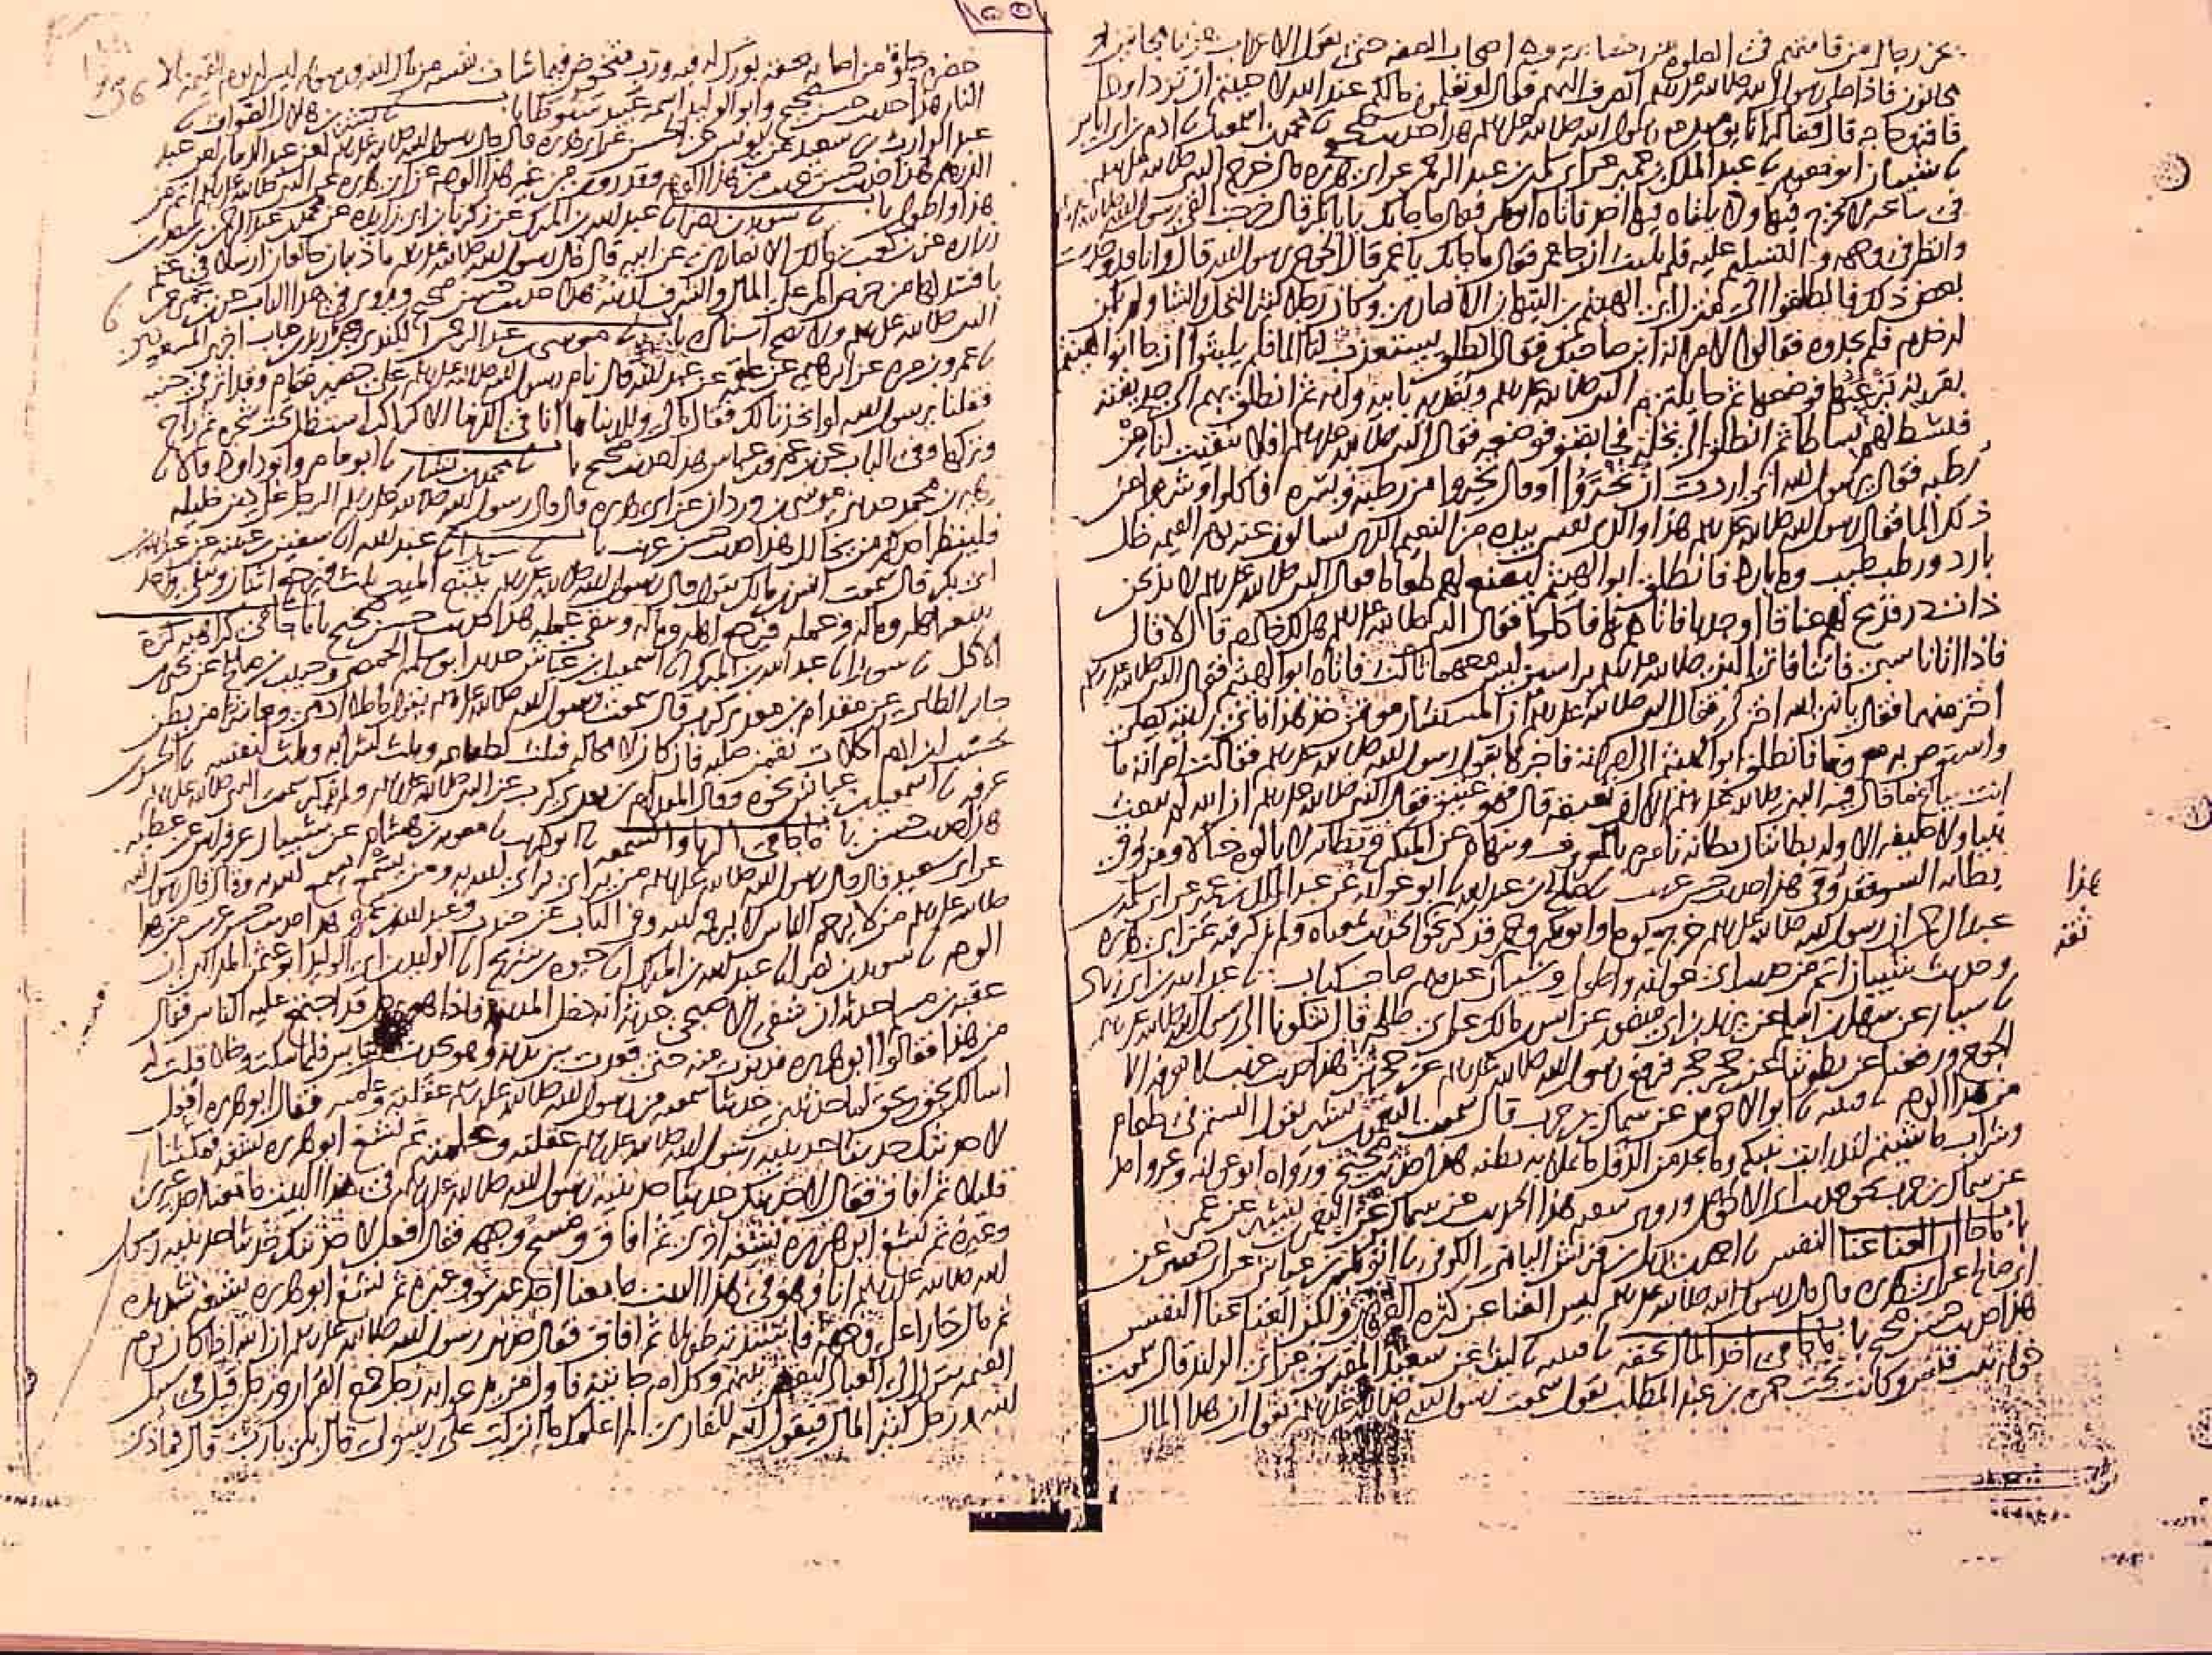 يخر رجال من قامتهم في الصلوة من الخصاصة وهم اصحاب الصفة حتى يقول الاعراب هؤلاء مجانين او
مجانون فاذا صلى رسول الله صلى الله عليه وسلم انصرف اليهم فقال لو تعلمون مالكم عند الله لاحببتم ان تزدادوا
فاقة وحاجة قال فضالة انا يومئذ مع رسول الله صلى الله عليه وسلم هذا حديث صحيح ثنا محمد بن اسمعيل ثنا ادم بن ابي اياس
ثنا شيبان ابو معوية ثنا عبد الملك بن عمير عن ابي سلمة بن عبد الرحمن عن ابي هريرة قال خرج النبي صلى الله عليه وسلم
في ساعة لا يخرج فيها ولا يلقاه فيها احد فاتاه ابو بكر فقال ما جا بك يابا بكر قال خرجت القى رسول الله صلى الله عليه وسلم
وانظر في وجهه والتسليم عليه فلم يلبث ان جا عمر فقال ما جا بك يا عمر قال الجوع يرسول الله قال وانا قد وجدت
بعض ذلك فانطلقوا الى منزل ابي الهيثم بن التيهان الانصاري وكان رجلا كثير النخل والشا ولم يكن
له خدم فلم يجدوه فقالوا لامراته اين صاحبك فقالت انطلق يستعذب لنا الما فلم يلبثوا ان جا ابو الهيثم
بقربة يزعبها فوضعها ثم جا يلتزم النبي صلى الله عليه وسلم ويفديه بابيه وامه ثم انطلق بهم الى حديقته
فبسط لهم بساطا ثم انطلق الى نخلة فجا بقنو فوضعه فقال النبي صلى الله عليه وسلم افلا تنقيت لنا من
رطبه فقال يرسول الله اني اردت ان تختاروا او قال تخيروا من رطبه وبسره فاكلوا وشربوا من
ذلك الما فقال رسول الله صلى الله عليه وسلم هذا والذي نفسي بيده من النعيم الذي تسالون عنه يوم القيمة ظل
بارد ورطب طيب وما بارد فانطلق ابو الهيثم ليصنع لهم طعاما فقال النبي صلى الله عليه وسلم لا تذبحن
ذات در فذبح لهم عناقا او جديا فاتاهم بها فاكلوا فقال النبي صلى الله عليه وسلم هل لك خادم قال لا قال
فاذا اتانا سبي فائتنا فاتى النبي صلى الله عليه وسلم براسين ليس معهما ثالث فاتاه ابو الهيثم فقال النبي صلى الله عليه وسلم
اختر منهما فقال يا نبي الله اختر لي فقال النبي صلى الله عليه وسلم ان المستشار مؤتمن خذ هذا فاني رايته يصلي
واستوص به معروفا فانطلق ابو الهيثم الى امراته فاخبرها بقول رسول الله صلى الله عليه وسلم فقالت امراته ما
انت ببالغ ما قال فيه النبي صلى الله عليه وسلم الا ان تعتقه قال فهو عتيق فقال النبي صلى الله عليه وسلم ان الله لم يبعث
نبيا ولا خليفة الا وله بطانتان بطانة تامره بالمعروف وتنهاه عن المنكر وبطانة لا تالوه خبالا ومن يوق
بطانة السو فقد وقي هذا حديث حسن غريب ثنا صالح بن عبد الله ثنا ابو عوانة عن عبد الملك بن عمير عن ابي سلمة بن
عبد الرحمن ان رسول الله صلى الله عليه وسلم خرج يوما وابو بكر وعمر فذكر نحو الحديث بمعناه ولم يذكر فيه عن ابي هريرة
وحديث شيبان اتم من حديث ابي عوانة واطول وشيبان عندهم صاحب كتاب ثنا عبد الله بن ابي زياد
ثنا سيار عن سهل بن اسلم عن يزيد بن ابي منصور عن انس بن مالك عن ابي طلحة قال شكونا الى رسول الله صلى الله عليه وسلم
الجوع ورفعنا عن بطوننا عن حجر حجر فرفع رسول الله صلى الله عليه وسلم عن حجرين هذا حديث غريب لا نعرفه الا
من هذا الوجه ثنا قتيبة ثنا ابو الاحوص عن سماك بن حرب قال سمعت النعمان بن بشير يقول الستم في طعام
وشراب ما شيتم لقد رايت نبيكم وما يجد من الدقل ما يملا به بطنه هذا حديث صحيح ورواه ابو عوانة وغير واحد
عن سماك بن حرب نحو حديث ابي الاحوص وروى شعبة هذا الحديث عن سماك عن النعمن بن بشير عن عمر
باب ما جا ان الغنا غنا النفس ثنا احمد بن بديل بن قريش اليامي الكوفي ثنا ابو بكر بن عياش عن ابي حصين عن
ابي صالح عن ابي هريرة قال قال رسول الله صلى الله عليه وسلم ليس الغنا عن كثرة العرض ولكن الغنا غنا النفس
هذا حديث حسن صحيح باب ما جا في اخذ المال بحقه ثنا قتيبة ثنا ليث عن سعيد المقبري عن ابي الوليد قال سمعت
خولة بنت قيس وكانت تحت حمزة بن عبد المطلب تقول سمعت رسول الله صلى الله عليه وسلم يقول ان هذا المال
هذا
ثقة
١٥٥
136
خضرة حلوة من اصابه بحقه بورك له فيه ورب متخوض فيما شات نفسه من مال الله ورسوله ليس له يوم القيمة الا
النار هذا حديث حسن صحيح وابو الوليد اسمه عبيد سنوطا باب ثنا بشر بن هلال الصواف ثنا
عبد الوارث بن سعيد عن يونس عن الحسن عن ابي هريرة قال قال رسول الله صلى الله عليه وسلم لعن عبد الدينار لعن عبد
الدرهم هذا حديث حسن غريب من هذا الوجه وقد روي من غير هذا الوجه عن ابي هريرة عن النبي صلى الله عليه وسلم اتم من
هذا واطول باب ثنا سويد بن نصر انا عبد الله بن المبرك عن زكريا بن ابي زايدة عن محمد بن عبد الرحمن بن سعد بن
زرارة عن ابن كعب بن مالك الانصاري عن ابيه قال قال رسول الله صلى الله عليه وسلم ما ذيبان جايعان ارسلا في غنم
بافسد لها من حرص المرء على المال والشرف لدينه هذا حديث حسن صحيح ويروى في هذا الباب عن ابن عمر عن
النبي صلى الله عليه وسلم ولا يصح اسناده باب ثنا موسى بن عبد الرحمن الكندي ثنا زيد بن حباب اخبرني المسعودي
ثنا عمرو بن مرة عن ابرهيم عن علقمة عن عبد الله قال نام رسول الله صلى الله عليه وسلم على حصير فقام وقد اثر في جنبه
فقلنا يرسول الله لو اتخذنا لك فقال مالي وللدنيا ما انا في الدنيا الا كراكب استظل تحت شجرة ثم راح
وتركها وفي الباب عن ابن عمر وابن عباس هذا حديث صحيح باب ثنا محمد بن بشار ثنا ابو عامر وابو داود قالا ثنا
زهير بن محمد حدثني موسى بن وردان عن ابي هريرة قال قال رسول الله صلى الله عليه وسلم الرجل على دين خليله
فلينظر احدكم من يخالل هذا حديث حسن غريب باب ثنا سويد انا عبد الله انا سفين بن عيينة عن عبد الله بن
ابي بكر قال سمعت انس بن مالك يقول قال رسول الله صلى الله عليه وسلم يتبع الميت ثلث فيرجع اثنان ويبقى واحد
يتبعه اهله وماله وعمله فيرجع اهله وماله ويبقى عمله هذا حديث حسن صحيح باب ما جا في كراهية كثرة
الاكل ثنا سويد انا عبد الله بن المبرك انا اسمعيل بن عياش حدثني ابو سلمة الحمصي وحبيب بن صالح عن يحيى بن
جابر الطائي عن مقدام بن معدي كرب قال سمعت رسول الله صلى الله عليه وسلم يقول ما ملا ادمي وعا شرا من بطن
بحسب ابن ادم اكلات يقمن صلبه فان كان لا محالة فثلث لطعامه وثلث لشرابه وثلث لنفسه ثنا الحسن بن
عرفة ثنا اسمعيل بن عياش نحوه وقال المقدام بن معدي كرب عن النبي صلى الله عليه وسلم ولم يذكر سمعت النبي صلى الله عليه وسلم
هذا حديث حسن باب ما جا في الريا والسمعة ثنا ابو كريب ثنا معوية بن هشام عن شيبان عن فراس عن عطية
عن ابي سعيد قال قال رسول الله صلى الله عليه وسلم من يرائي يرائي الله به ومن يسمع يسمع الله به وقال قال رسول الله
صلى الله عليه وسلم من لا يرحم الناس لا يرحمه الله وفي الباب عن جندب وعبد الله بن عمرو هذا حديث حسن غريب من هذا
الوجه ثنا سويد بن نصر انا عبد الله بن المبرك انا حيوة بن شريح انا الوليد بن ابي الوليد ابو عثمن المدايني ان
عقبة بن مسلم حدثه ان شفي الاصبحي حدثه انه دخل المدينة فاذا هو برجل قد اجتمع عليه الناس فقال
من هذا فقالوا ابو هريرة فدنوت منه حتى قعدت بين يديه وهو يحدث الناس فلما سكت وخلا قلت له
اسالك بحق وبحق لما حدثتني حديثا سمعته من رسول الله صلى الله عليه وسلم عقلته وعلمته فقال ابو هريرة افعل
لاحدثنك حديثا حدثنيه رسول الله صلى الله عليه وسلم عقلته وعلمته ثم نشغ ابو هريرة نشغة فمكثنا
قليلا ثم افاق فقال لاحدثنك حديثا حدثنيه رسول الله صلى الله عليه وسلم في هذا البيت ما معنا احد غيري
وغيره ثم نشغ ابو هريرة نشغة اخرى ثم افاق ومسح وجهه فقال افعل لاحدثنك حديثا حدثنيه رسول
الله صلى الله عليه وسلم انا وهو في هذا البيت ما معنا احد غيري وغيره ثم نشغ ابو هريرة نشغة شديدة
ثم مال خارا على وجهه فاسندته طويلا ثم افاق فقال حدثني رسول الله صلى الله عليه وسلم ان الله اذا كان يوم
القيمة ينزل الى العباد ليقضي بينهم وكل امة جاثية فاول من يدعو به رجل جمع القران ورجل قتل في سبيل
الله ورجل كثير المال فيقول الله للقارئ الم اعلمك ما انزلت على رسولي قال بلى يارب قال فماذا